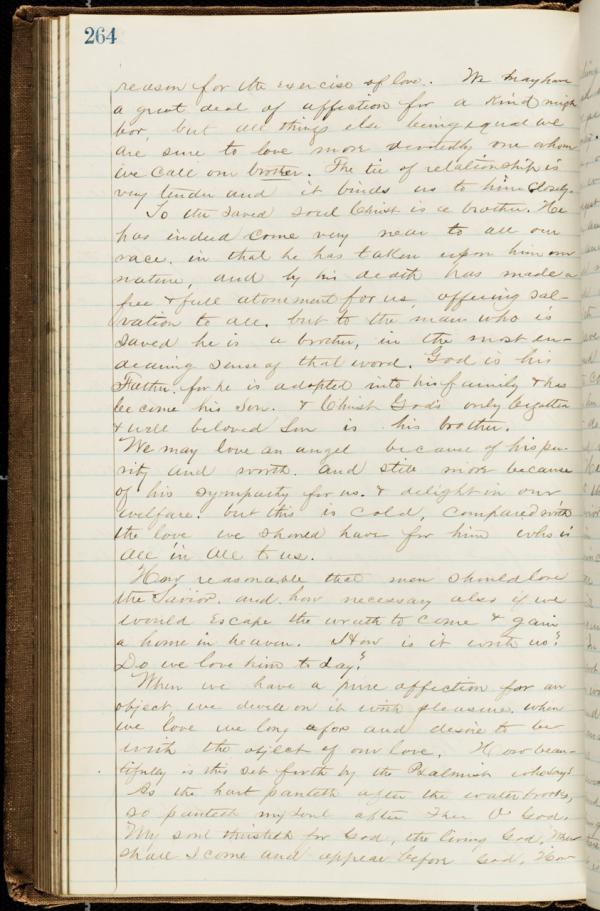 264
reason for the exercise of love. We may have
a great deal of affection for a kind neigh
bor, but all things else being equal we
are sure to love more devotedly one whom
we call our brother. The tie of relationship is
very tender and it binds us to him closely.
To the saved soul Christ is a brother. He
has indeed come very near to all our
race, in that he has taken upon him our
nature, and by his death has made a
free & full atonement for us, offering sal-
vation to all. but to the man who is
saved he is a brother, in the most en-
dearing sense of that word. God is his
Father. for he is adopted into his family & has
become his Son. & Christ God's only begotten
& well beloved Son is his brother.
We may love an angel because of his pu-
rity and worth. and still more because
of his sympathy for us. & delight in our
welfare. but this is cold, compared with
the love we should have for him who is
all in all to us.
How reasonable that man should love
the Savior. and how necessary also if we
would escape the wrath to come & gain
a home in heaven. How is it with us?
Do we love him to day?
When we have a pure affection for an
object, we dwell on it with pleasure. when
we love we long after and desire to be
with the object of our love. How beau-
tifully is this set forth by the Psalmist who says
As the hart panteth after the water brooks,
so panteth my soul after Thee O God.
My soul thirsteth for God, the living God, when
shall I come and appear before God. How